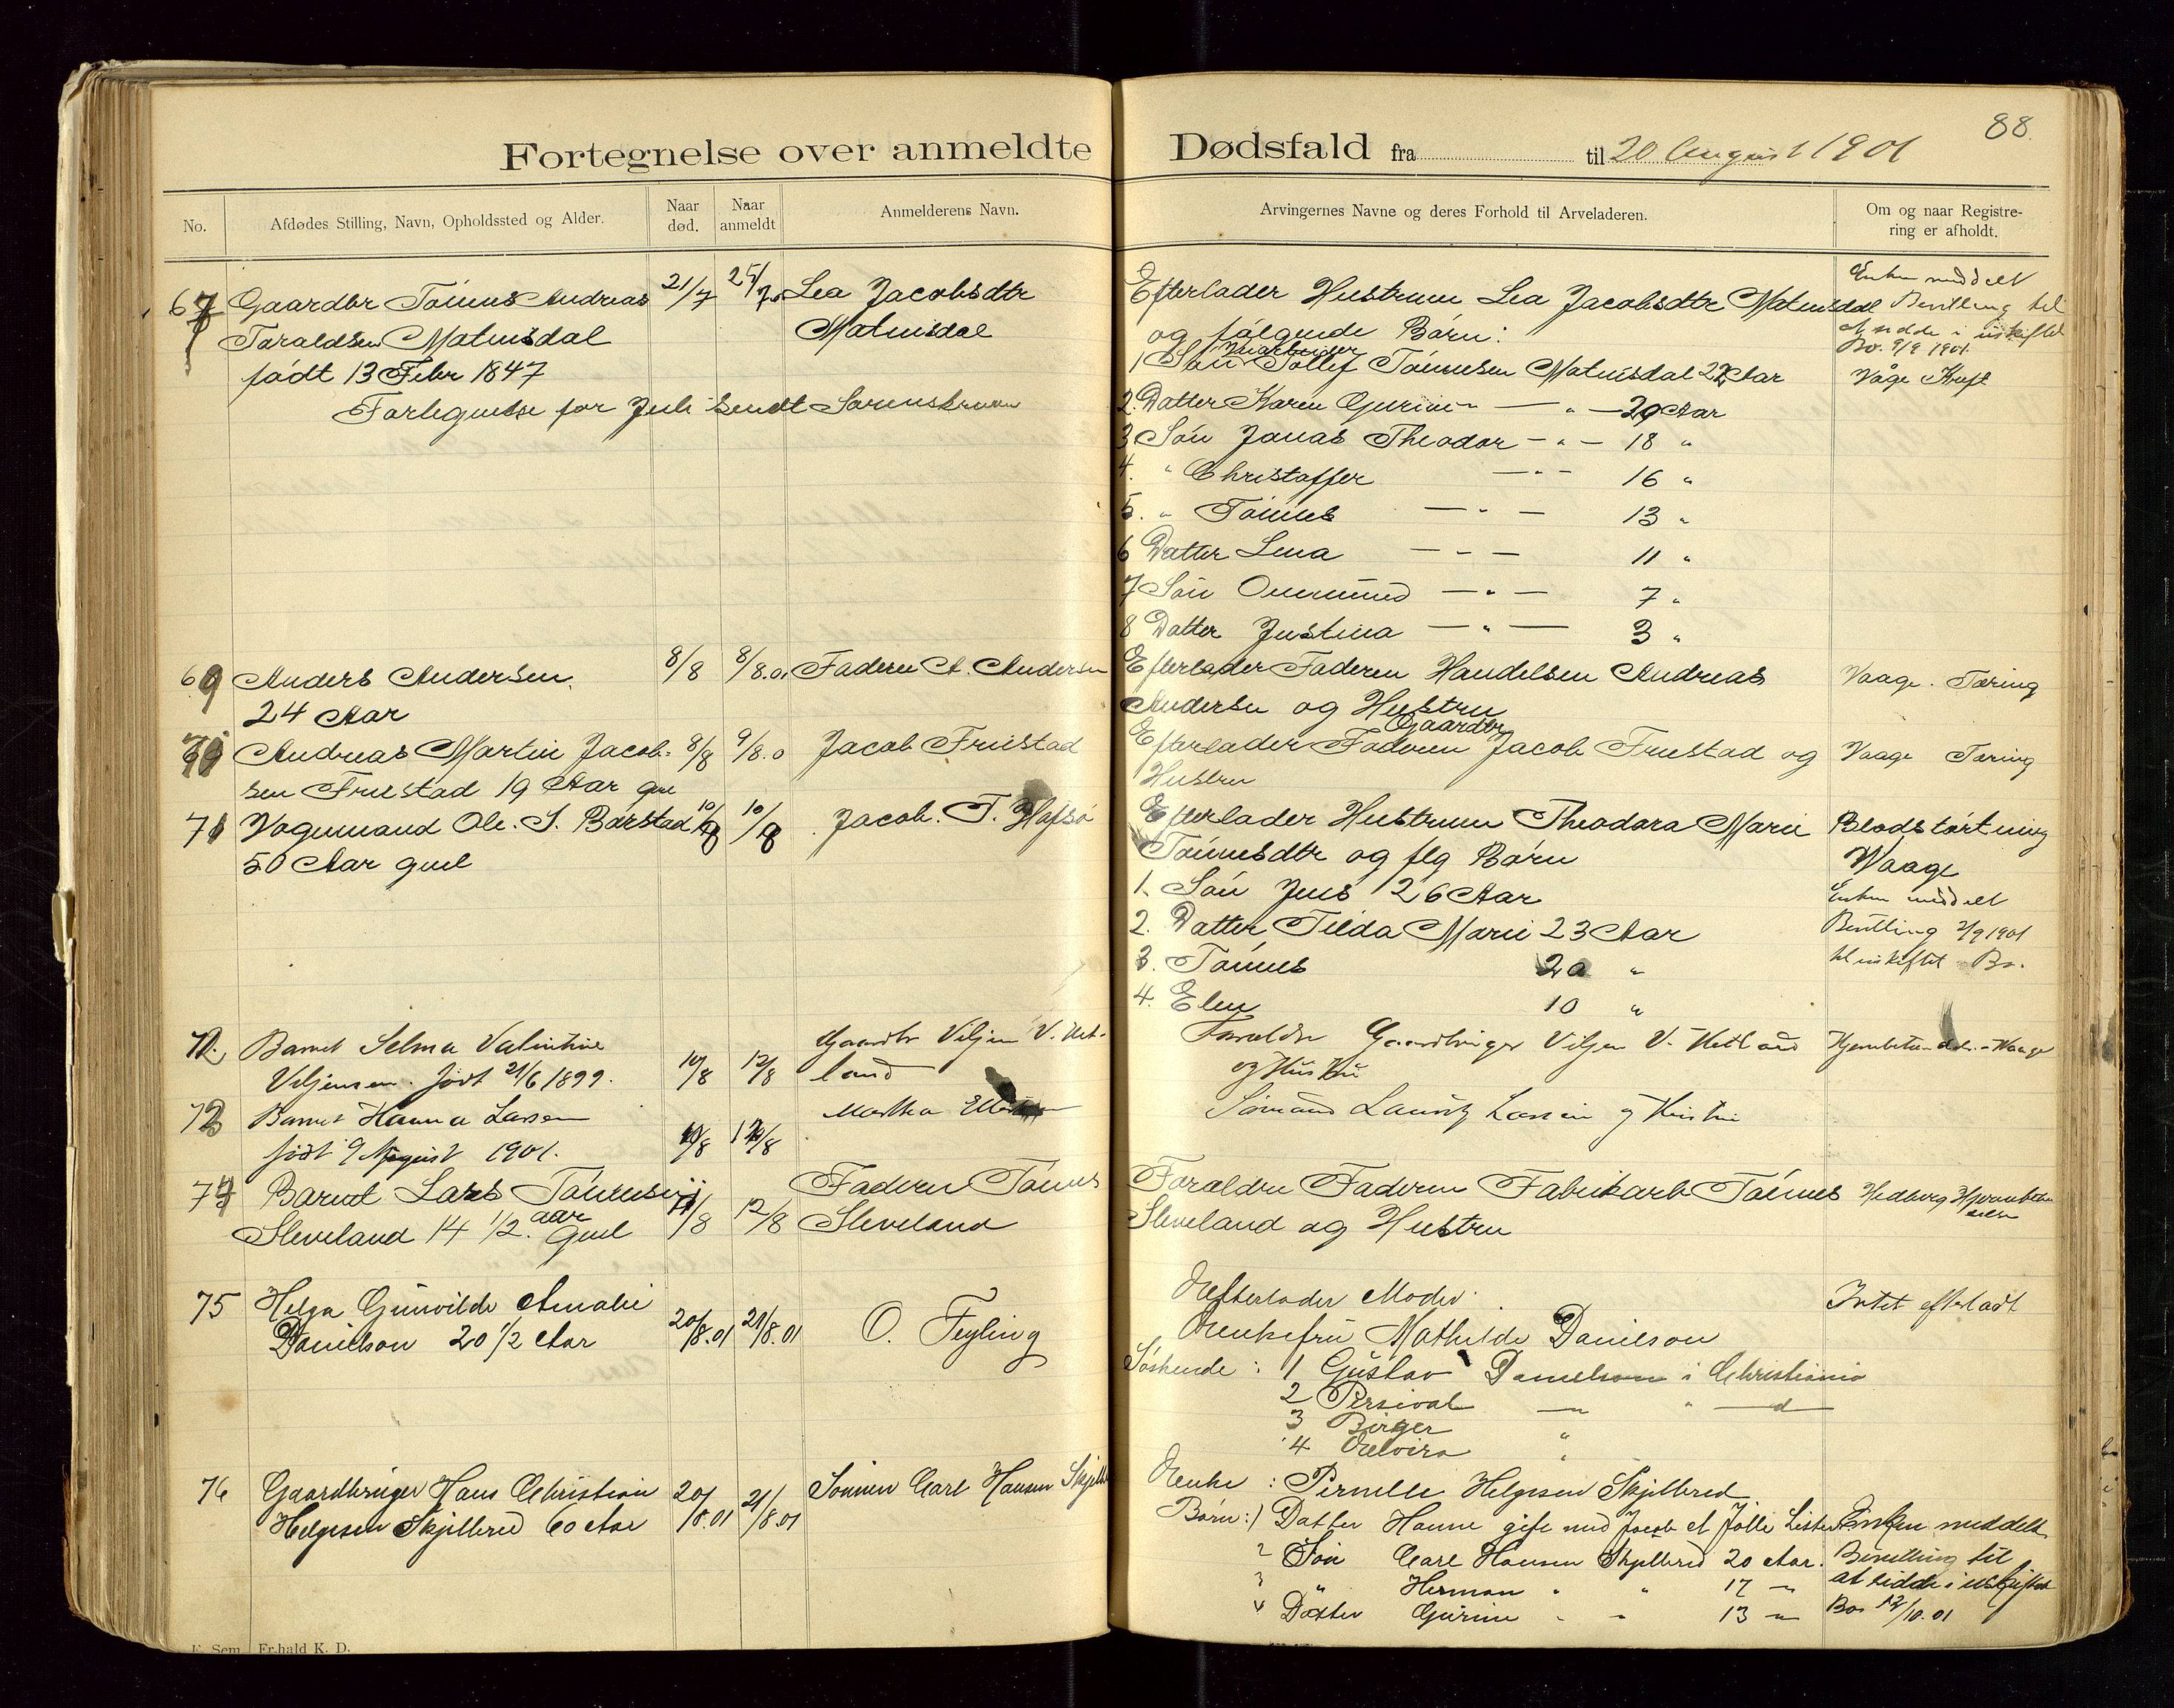 88.
Fortegnelse over anmeldte Dødsfald fra til 20 August 1901
No.
Afdødes Stilling, Navn, Opholdssted og Alder.
Naar død.
Naar anmeldt
Anmelderens Navn.
Arvingernes Navne og deres Forhold til Arveladeren.
Om og naar Registre-
ring er afholdt.
67 Gaardbr Tönnes Andreas 21/7 25/7 Lea Jacobsdtr
Taraldsen Matmisdal Matmisdal
födt 13 Febr 1847
Fortegnelse for Juli sendt Sorenskriveren
Efterlader Hustruen Lea Jacobsdtr Matmisdal
og følgende Börn:
1 Sön Tollef Tönnesen Matmisdal 22 Aar
2. Datter Karen Gurine — " — 20 Aar
3 Sön Jonas Theodor — " — 18 "
4. " Christoffer — " — 16 "
5. " Tönnes — " — 13 "
6 Datter Lena — " — 11 "
7 Sön Ommund — " — 7 "
8 Datter Justina — " — 3 "
Enken meddelt
Bevilling til
at sidde i uskiftet
Bo. 9/9 1901.
Våge Kræft
69 Anders Andersen 8/8 8/8.01 Faderen A. Andersen
24 Aar
Efterlader Faderen Handelsen Andreas
Andersen og Hustru
Vaage. Tæring
70 Andreas Martin Jacob- 8/8 9/8.0 Jacob Friestad
sen Friestad 19 Aar gml
Gaardbr
Efterlader Faderen Jacob Friestad og
Hustru
Vaage Tæring
71 Vognmand Ole. S. Barstad 10/8 10/8 Jacob. T. Hafsö
50 Aar gml
Efterlader Hustruen Theodora Marie
Tönnesdtr og flg Börn
1. Sön Jens 26 Aar
2. Datter Tilda Marie 23 Aar
3. Tönnes 20 "
4. Elen 10 "
Blodstörtning
Waage
Enken meddelt
Bevilling 2/9 1901
til uskiftet Bo.
72. Barnet Selma Valentine Gaardbr Viljen V. Het-
Viljensen. født 21/6 1899. 10/8 12/8 land
Foreldre Gaardbruger Viljen V. Hetland
og Hustru
Hjernebetændelse - Waage
73 Barnet Hanna Larsen Martha
født 9 August 1901. 10/8 12/8
Sömand Lauritz Larsen og Hustru
74 Barnet Lars Tönnesen Faderen Tönnes
Sleveland 14 1/2 aar gml 11/8 12/8 Sleveland
Foraldre Faderen Fabrikarb Tönnes
Sleveland og Hustru
Hedberg Hjernebetæn
delse
75 Helga Gunvilde Amalie
Danielson 20 1/2 Aar 20/8.01 21/8.01 O. Feyling
Efterlader Moder
Enkefru Mathilde Danielson
Söskende: 1 Gustav Danielson i Christiania
2 Persival — " — d
3 Birger "
4 Elvira "
Intet efterladt
76 Gaardbruger Hans Christian 20/8.01 21/8.01 Sönnen Carl Hansen Skjelb
Helgesen Skjelbred 60 Aar
Enke : Pernelle Helgesen Skjelbred
Börn: 1 Datter Hanne gift med Jacob A Jölle Lister
2 Sön Carl Hansen Skjelbred 20 Aar.
3 " Herman " " 17 "
4 Datter Gurine " " 13 "
Enken meddelt
Bevilling til
at sidde i uskiftet
Bo 12/10.01
E. Sem Fr.hald K. D.